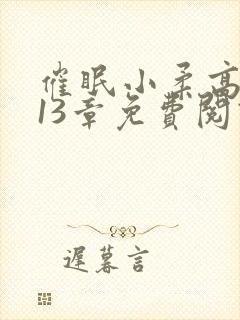 催眠小柔高
13章免費閱
遲暮言